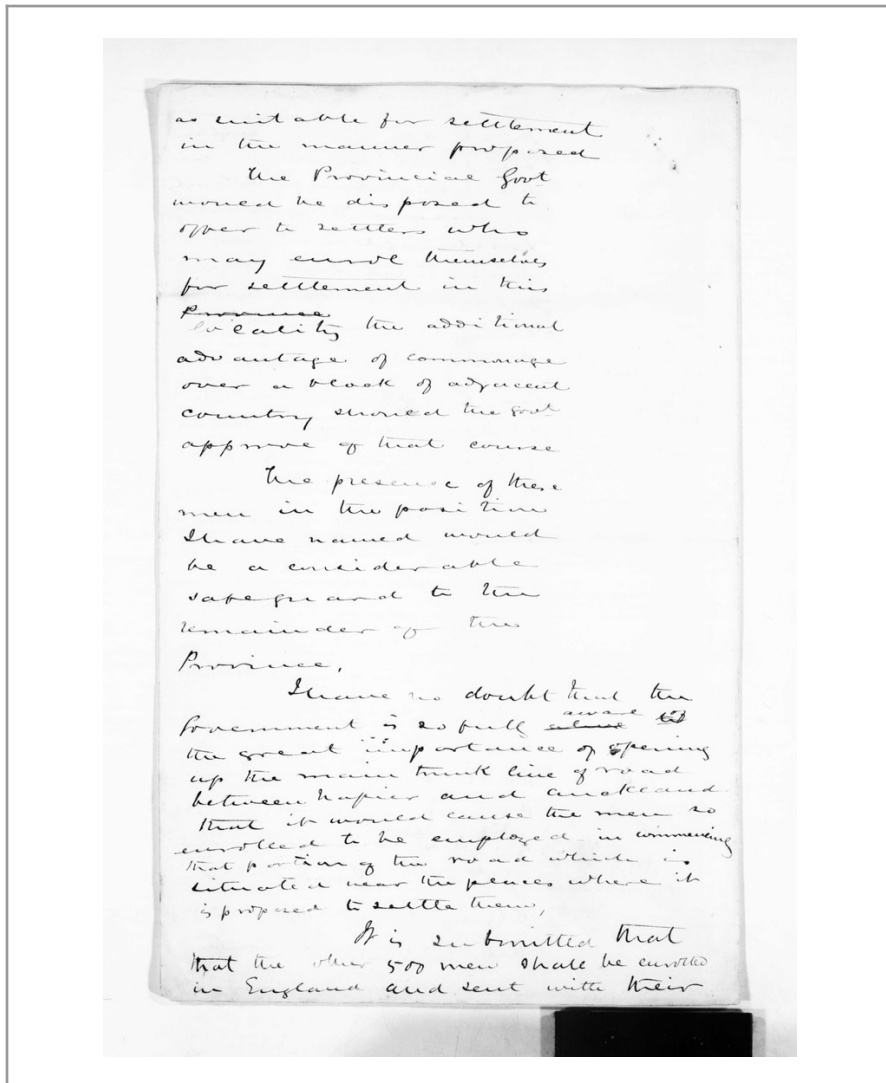 as suitable for settlement
in the manner proposed
The Provincial Govt
would be disposed to
offer to settlers who
may enrol themselves
for settlement in this
Province
locality the additional
advantage of commonage
over a block of adjacent
country should the Govt
approve of that course
The presence of these
men in the position
I have named would
be a considerable
safeguard to the
remainder of the
Province,
I have no doubt that the
Government is so full aware
the great importance of opening
up the main trunk line of road
between Napier and Auckland
that it would cause the men so
enrolled to be employed in commencing
that portion of the road which is
situated near the places where it
is proposed to settle them,
It is submitted that
that the other 500 men shall be enrolled
in England and sent with their